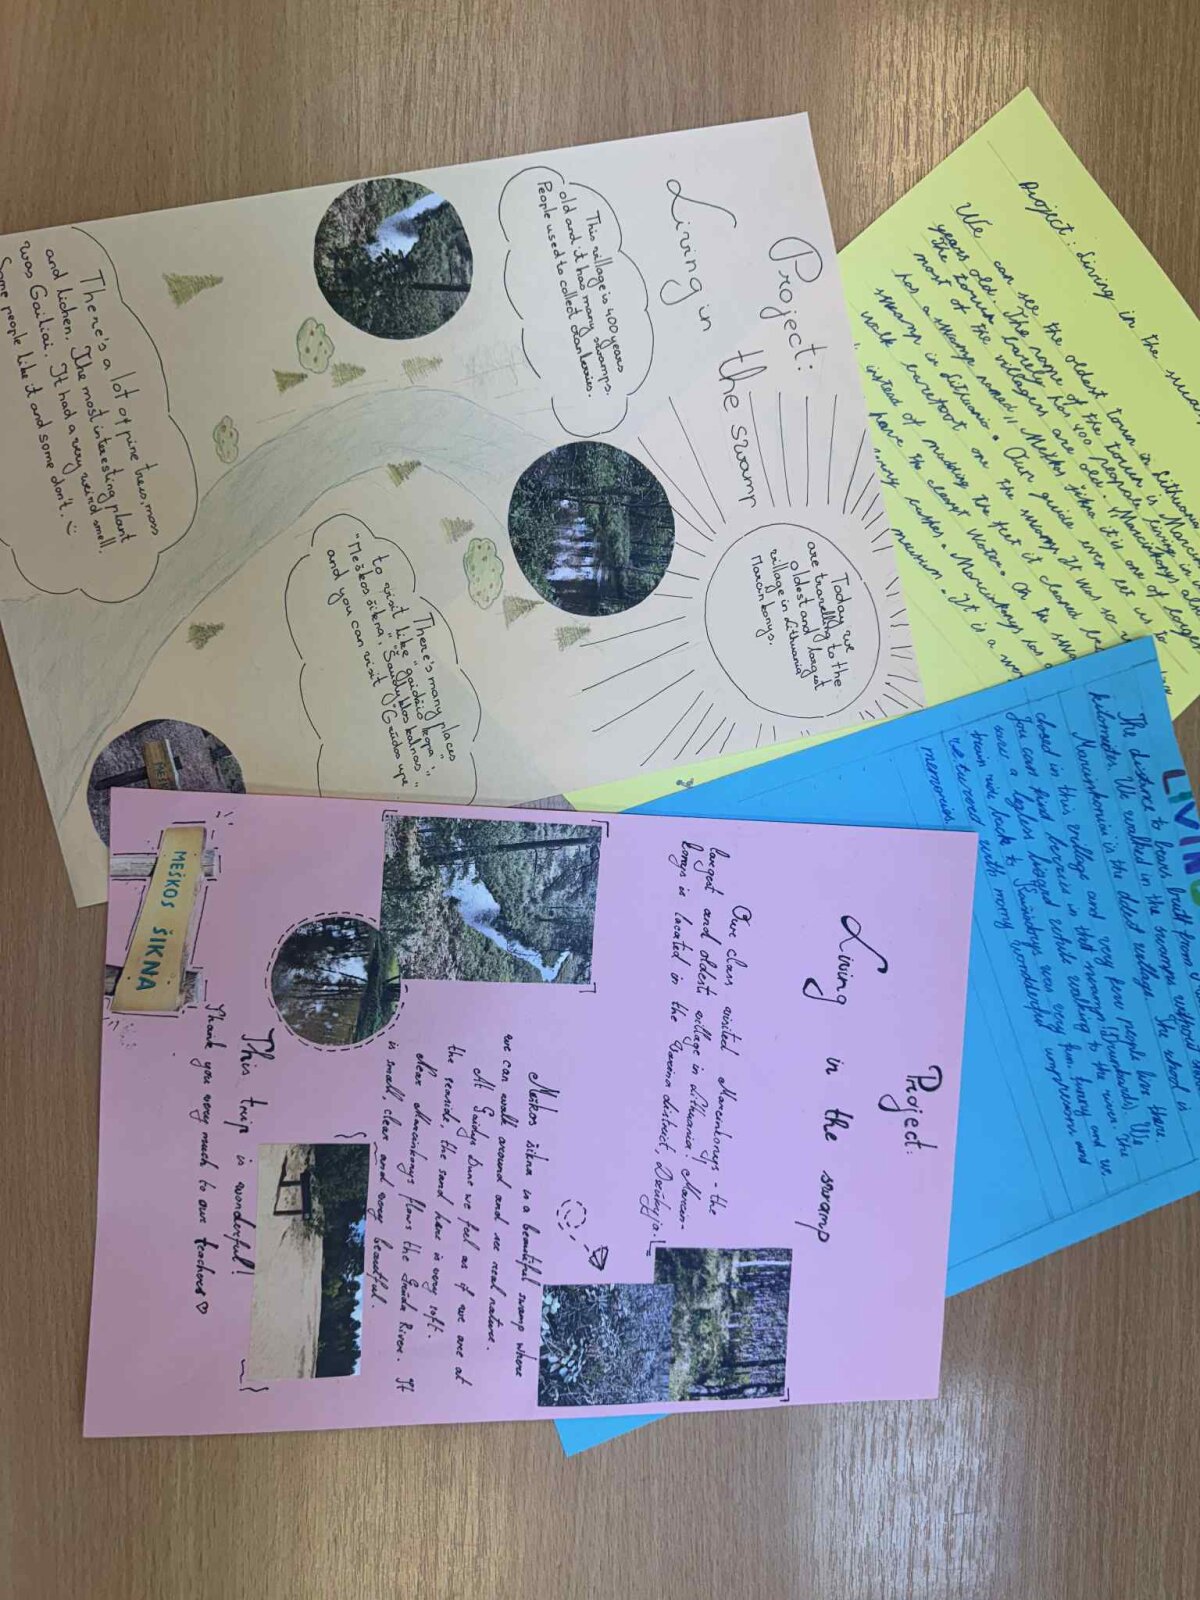 Project:
Living in
the swamp
Today we
are travelling to the
oldest and largest
village in Lithuania
Marcinkonys.
This village is 400 years
old and it has many swamps.
People used to collect cranberries.
There's many places
to visit like "gaidžio kopa",
"Šaudyklos kalnas",
"Meškos šikna.
and you can visit
There's a lot of pine trees, moss
and lichen. The most interesting plant
was Gailiai. It had a very weird smell.
Some people like it and some don't.
Project:
Living in the swamp
Our class visited Marcinkonys - the
largest and oldest village in Lithuania. Marcin-
konys is located in the Varėna district, Dzūkija.
Meškos šikna is a beautiful swamp where
we can walk around and see real nature.
At Gaidys Dune we feel as if we are at
the seaside, the sand here is very soft.
Near Marcinkonys flows the Grūda River. It
is small, clear and very beautiful.
This trip is wonderful!
Thank you very much to our teachers ♡
MEŠKOS ŠIKNA
Project: Living in the
We can see the oldest town in Lithuania
years old. The name of the town is
The town barely has 400 people
most of the villagers are old.
has a swamp named "Meškos šikna it's one of
swamp in Lithuania. Our guide even let us to
walk barefoot on the swamp. It was so
instead of
have the clearest water. On the
museum. It is a
LIVING
The distance to bears butt
kilometer. We walked in the swamps without
Marcinkonys is the oldest village. The school is
closed in this village and very few people live there. We
You can find berries in that swamp
saw a legless lizard while walking to the river. The
train ride back to was very fun, funny and we
returned with many wonderful
memories